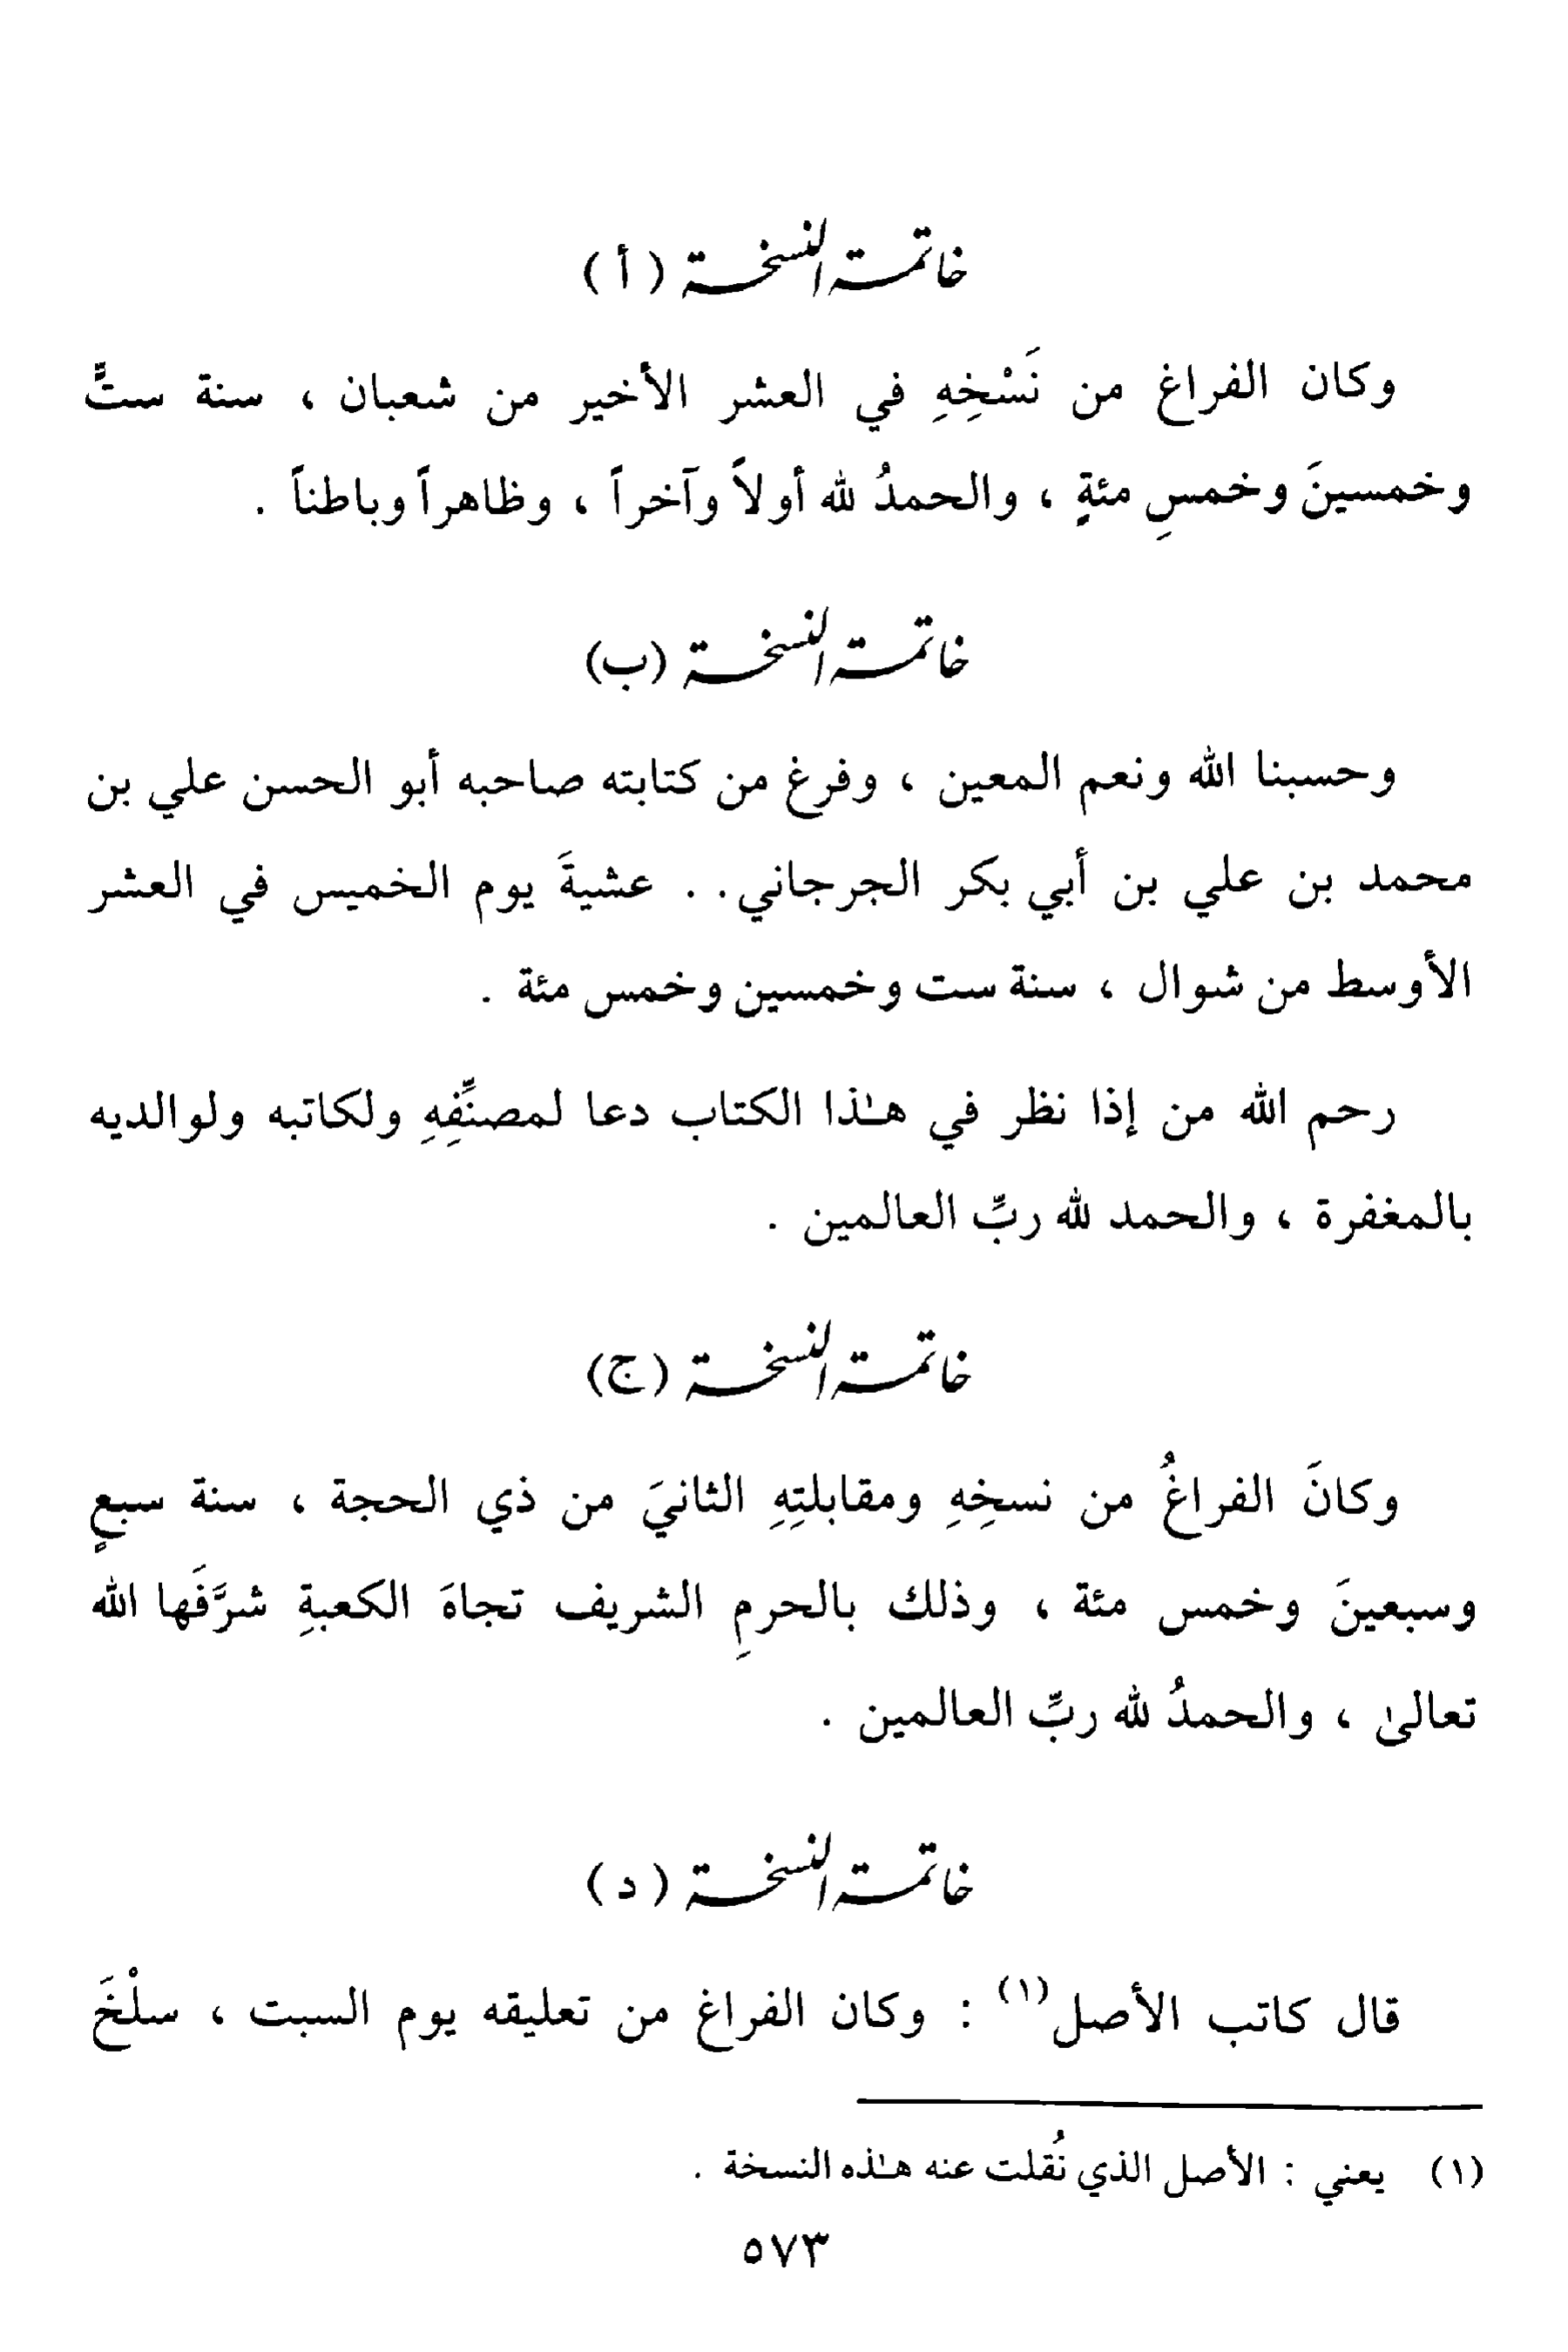 خاتمة النسخة ( أ )
وكان الفراغ من نَسْخِهِ في العشر الأخير من شعبان ، سنة ستٍّ
وخمسينَ وخمسِ مئةٍ ، والحمدُ لله أولاً وآخراً ، وظاهراً وباطناً .
خاتمة النسخة (ب)
وحسبنا الله ونعم المعين ، وفرغ من كتابته صاحبه أبو الحسن علي بن
محمد بن علي بن أبي بكر الجرجاني . . عشيةَ يوم الخميس في العشر
الأوسط من شوال ، سنة ست وخمسين وخمس مئة .
رحم الله من إذا نظر في هـٰذا الكتاب دعا لمصنِّفِهِ ولكاتبه ولوالديه
بالمغفرة ، والحمد لله ربِّ العالمين .
خاتمة النسخة (ج)
وكانَ الفراغُ من نسخِهِ ومقابلتِهِ الثانيَ من ذي الحجة ، سنة سبعٍ
وسبعينَ وخمس مئة ، وذلك بالحرمِ الشريف تجاهَ الكعبةِ شرَّفَها الله
تعالىٰ ، والحمدُ لله ربِّ العالمين .
خاتمة النسخة ( د )
قال كاتب الأصل(١) : وكان الفراغ من تعليقه يوم السبت ، سلْخَ
(١) يعني : الأصل الذي نُقلت عنه هـٰذه النسخة .
٥٧٣